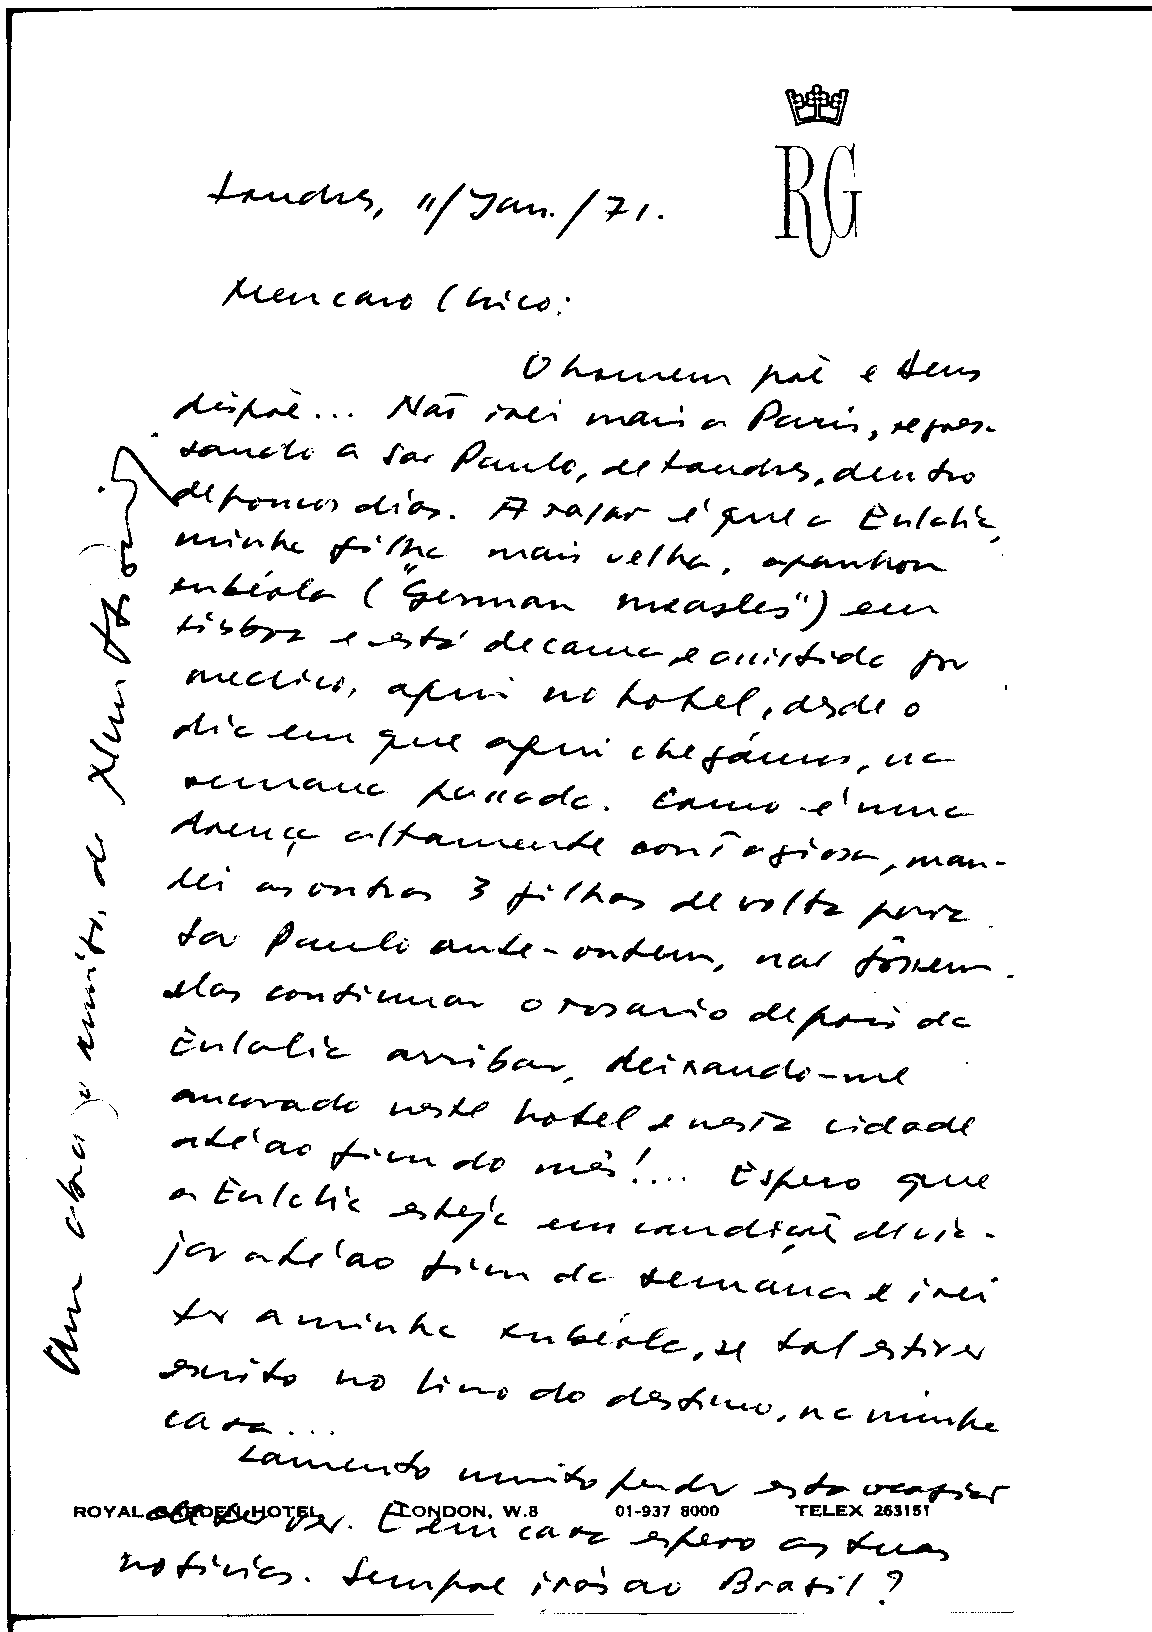 RG
Londres, 11/Jan./71.
Meu caro Chico:
O homem põe e Deus
dispõe... Não irei mais a Paris, regres-
sando a São Paulo, de Londres, dentro
de poucos dias. A razão é que a Eulália,
minha filha mais velha, apanhou
rubéola ("German measles") em
Lisboa e está de cama, e assistida por
medico, aqui no hotel, desde o
dia em que aqui chegámos, na
semana passada. Como é uma
doença altamente contagiosa, man-
dei as outras 3 filhas de volta para
São Paulo ante-ontem, não fôssem
elas continuar o rosario depois da
Eulalia arribar, deixando-me
ancorado neste hotel e nesta cidade
até ao fim do mês!... Espero que
a Eulalia esteja em condição de via-
jar até ao fim da semana e irei
ter a minha rubéola, se tal estiver
escrito no livro do destino, na minha
casa...
Lamento muito perder esta ocasião
de te ver. E em casa espero as tuas
notícias. Sempre irás ao Brasil?
ROYAL GARDEN HOTEL LONDON, W.8 01-937 8000 TELEX 263151
Um abraço amigo, do